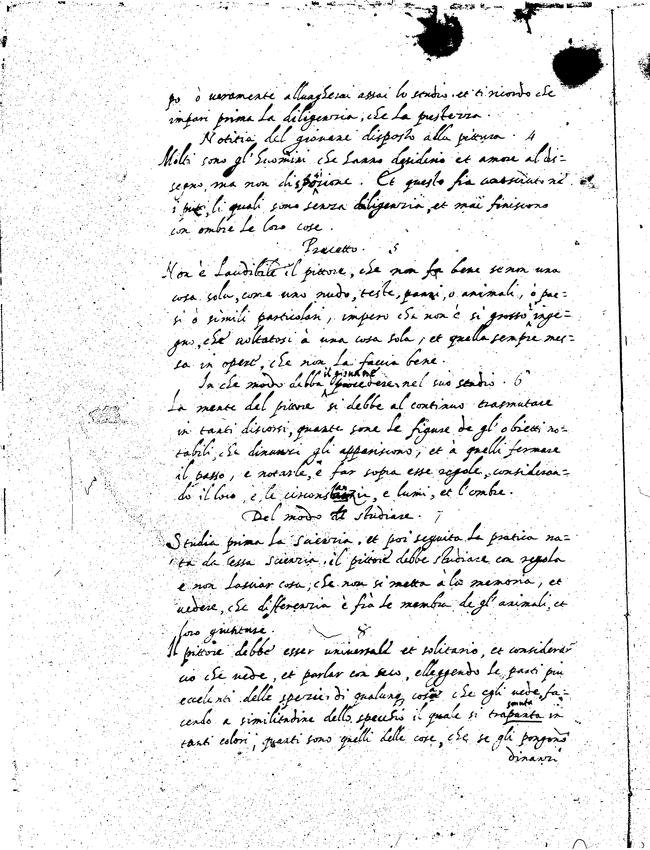 po ò veramente allungherai assai lo studio. et ti ricordo che
impari prima la diligenzia, che la prestezza.
Notitia del giovane disposto alla pittura. 4
Molti sono gl'huomini che hanno desiderio et amore al dis=
segno, ma non dispositione. Et questo fia conosciuto ne
i putti, li quali sono senza diligenzia, et mai finiscono
con ombre le loro cose.
Precetto. 5
Non è laudibile il pittore, che non fa bene se non una
cosa sola, come uno nudo, teste, panni, o animali, o pae=
si ò simili particolari, impero che non è si grosso inge=
gno, che voltatosi à una cosa sola, et quella sempre mes=
sa in opera, che non la faccia bene.
In che modo debba il giovane procedere nel suo studio. 6
La mente del pittore si debbe al continuo trasmutare
in tanti discorsi, quante sono le figure de gl'obietti no=
tabili, che dinanzi gli appariscono, et à quelli fermare
il passo, e notarle, e far sopra esse regole, consideran=
do il loco, e le circonstanzie, e lumi, et l'ombre.
Del modo di studiare. 7
Studia prima la scienzia, et poi seguita la pratica na=
ta da essa scienzia. il pittore debbe studiare con regola
e non lasciar cosa, che non si metta à la memoria, et
vedere, che differenzia è frà le membra de gl'animali, et
loro giunture. 8
Il pittore debbe esser universale et solitario, et considerar
ciò che vede, et parlar con seco, elleggendo le parti piu
eccelenti delle spezie di qualunq cosa che egli vede, fa=
cendo a similitudine dello specchio il quale si trasmuta in
tanti colori, quanti sono quelli delle cose, che se gli pongono
dinanzi